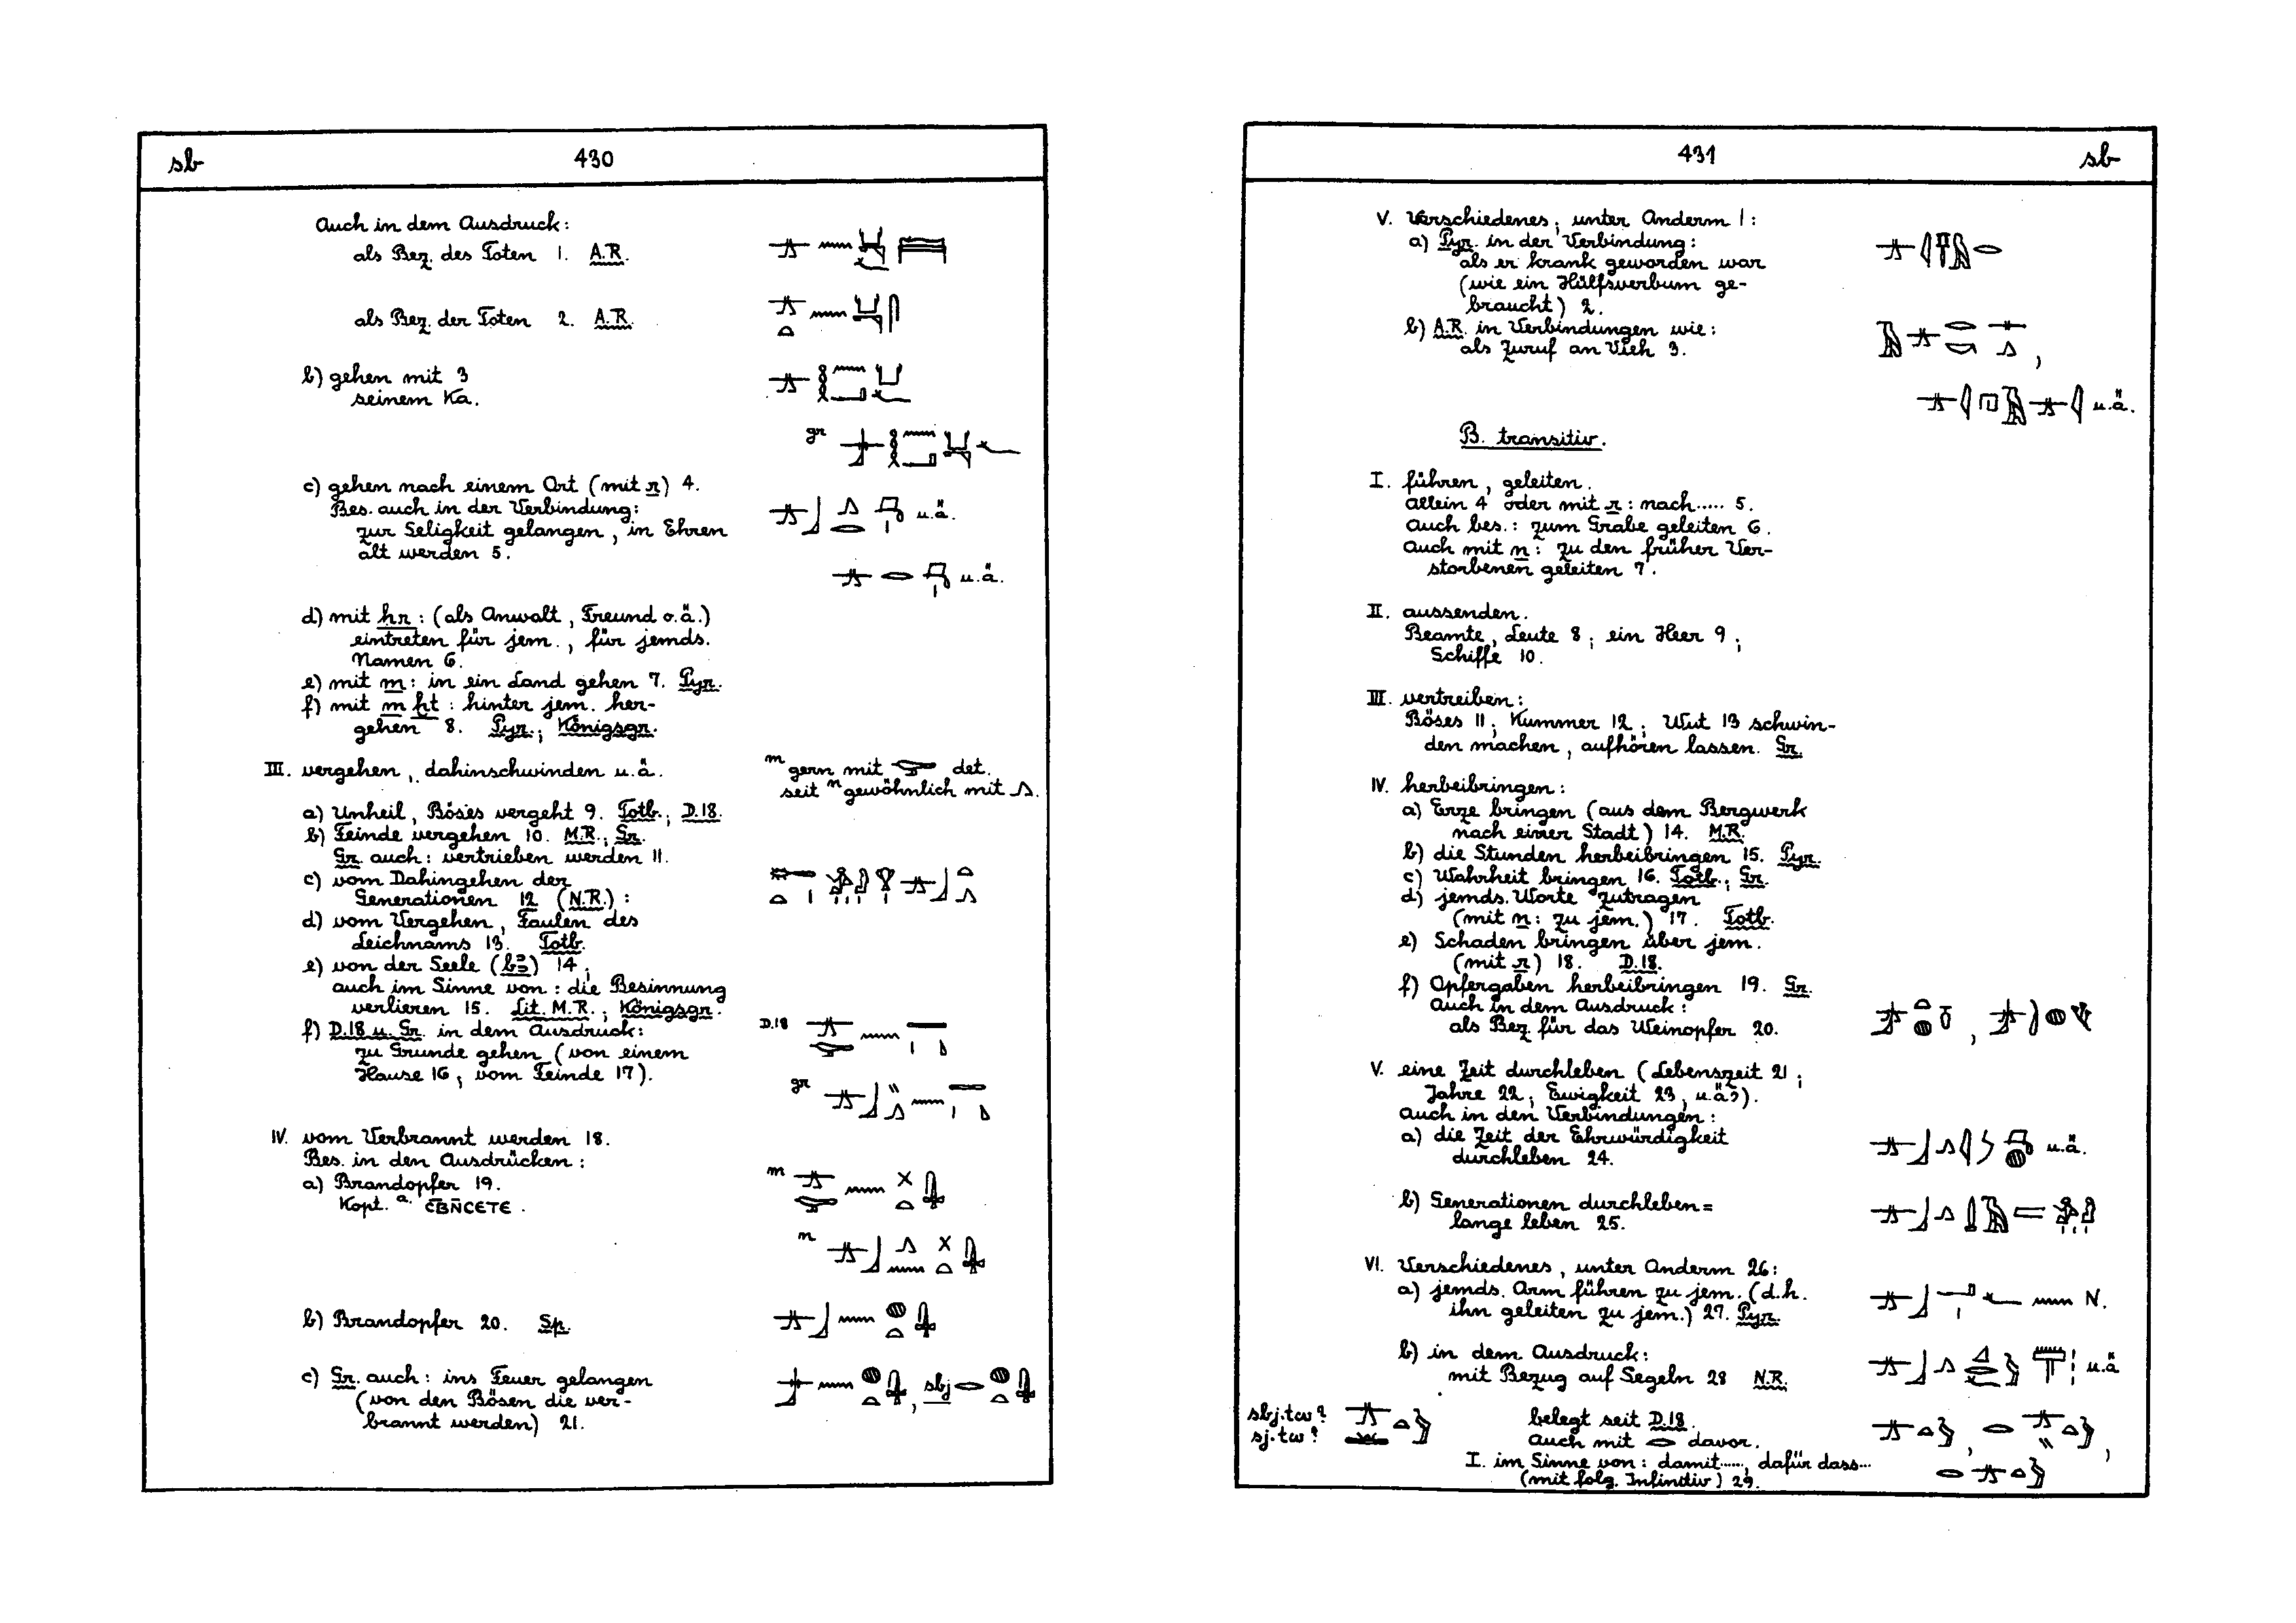 sb 430
Auch in dem Ausdruck:
als Bez. des Toten 1. A.R.
als Bez. der Toten 2. A.R.
b) gehen mit 3
seinem Ka.
gr
c) gehen nach einem Ort (mit r) 4.
Bes. auch in der Verbindung:
u.ä.
zur Seligkeit gelangen, in Ehren
alt werden 5.
u.ä.
d) mit hr: (als Anwalt, Freund o.ä.)
eintreten für jem., für jemds.
Namen 6.
e) mit m: in ein Land gehen 7. Pyr.
f) mit m ḫt: hinter jem. her-
gehen 8. Pyr.; Königsgr.
III. vergehen, dahinschwinden u.ä.
m gern mit det.
seit n gewöhnlich mit 𓂻.
a) Unheil, Böses vergeht 9. Totb.; D.18.
b) Feinde vergehen 10. M.R.; Gr.
Gr. auch: vertrieben werden 11.
c) vom Dahingehen der
Generationen 12 (N.R.):
d) vom Vergehen, Faulen des
Leichnams 13. Totb.
e) von der Seele (bꜣ) 14;
auch im Sinne von: die Besinnung
verlieren 15. Lit. M.R.; Königsgr.
f) D.18 u. Gr. in dem Ausdruck:
D.18
zu Grunde gehen (von einem
Hause 16; vom Feinde 17).
gr
IV. vom Verbrannt werden 18.
Bes. in den Ausdrücken:
a) Brandopfer 19.
m
Kopt. a. ⲤⲂⲚⲤⲈⲦⲈ.
n
b) Brandopfer 20. Sp.
c) Gr. auch: ins Feuer gelangen
, sbj
(von den Bösen die ver-
brannt werden) 21.
431 sb
V. Verschiedenes; unter Anderm 1:
a) Pyr. in der Verbindung:
als er krank geworden war
(wie ein Hülfsverbum ge-
braucht) 2.
b) A.R. in Verbindungen wie:
als Zuruf an Vieh 3.
u.ä.
B. transitiv.
I. führen, geleiten.
allein 4 oder mit r: nach..... 5.
Auch bes.: zum Grabe geleiten 6.
Auch mit n: zu den früher Ver-
storbenen geleiten 7.
II. aussenden.
Beamte, Leute 8; ein Heer 9;
Schiffe 10.
III. vertreiben:
Böses 11; Kummer 12; Wut 13 schwin-
den machen, aufhören lassen. Gr.
IV. herbeibringen:
a) Erze bringen (aus dem Bergwerk
nach einer Stadt) 14. M.R.
b) die Stunden herbeibringen 15. Pyr.
c) Wahrheit bringen 16. Totb.; Gr.
d) jemds. Worte zutragen
(mit n: zu jem.) 17. Totb.
e) Schaden bringen über jem.
(mit r) 18. D.18.
f) Opfergaben herbeibringen 19. Gr.
Auch in dem Ausdruck:
als Bez. für das Weinopfer 20.
V. eine Zeit durchleben (Lebenszeit 21;
Jahre 22; Ewigkeit 23, u.ä.).
Auch in den Verbindungen:
a) die Zeit der Ehrwürdigkeit
u.ä.
durchleben 24.
b) Generationen durchleben =
lange leben 25.
VI. Verschiedenes, unter Anderm 26:
a) jemds. Arm führen zu jem. (d.h.
N.
ihn geleiten zu jem.) 27. Pyr.
b) in dem Ausdruck:
u.ä
mit Bezug auf Segeln 28 N.R.
sbj.tw?
sj.tw?
belegt seit D.18.
Auch mit 𓂋 davor.
I. im Sinne von: damit....., dafür dass...
(mit folg. Infinitiv) 29.